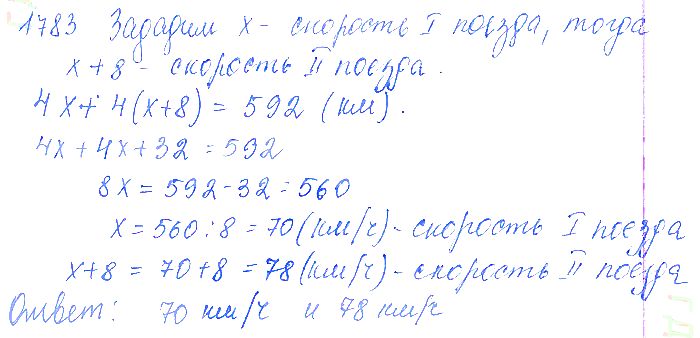 1783 Зададим x - скорость I поезда, тогда
x + 8 - скорость II поезда.
4x + 4(x+8) = 592 (км).
4x + 4x + 32 = 592
8x = 592 - 32 = 560
x = 560 : 8 = 70 (км/ч) - скорость I поезда
x+8 = 70+8 = 78 (км/ч) - скорость II поезда
Ответ: 70 км/ч и 78 км/ч